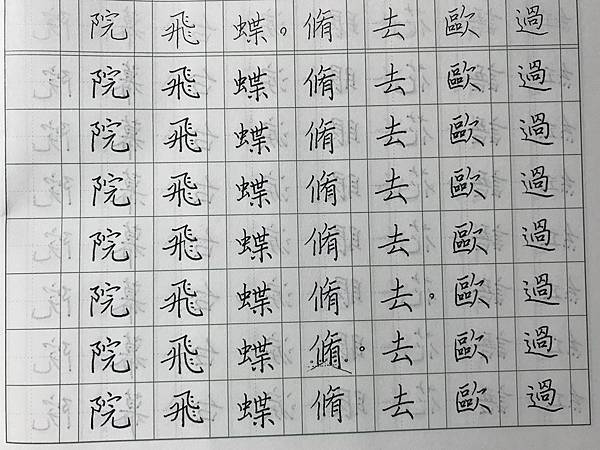 過過過過過過過過
歐歐歐歐歐歐歐歐
去去去去去去去去
脩脩脩脩脩脩脩脩
蝶蝶蝶蝶蝶蝶蝶蝶
飛飛飛飛飛飛飛飛
院院院院院院院院